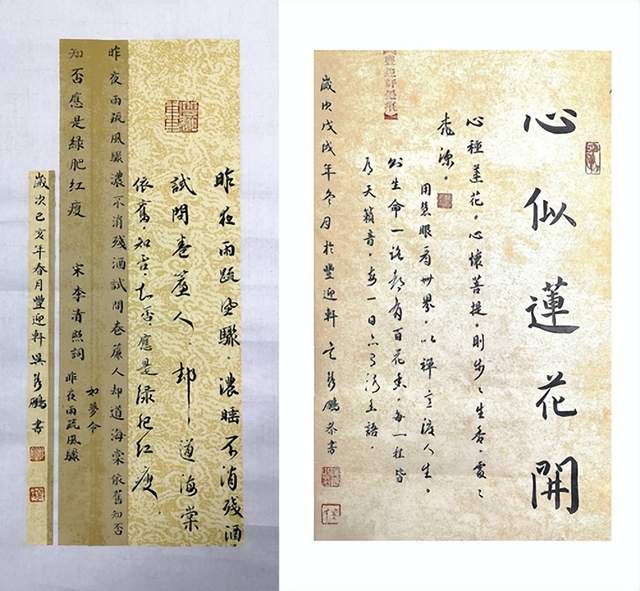 昨夜雨疏風驟，濃睡不消残酒，
試問卷簾人，却道海棠
依舊，知否，知否應是绿肥红瘦。
昨夜雨疏風驟濃不消残酒試問卷簾人却道海棠依舊知否
知否應是綠肥红瘦 宋李清照詞
如夢令
昨夜雨疏風驟
歲次己亥年春月豐迎軒 鵬書
心似蓮花開
心種蓮花，心懷菩提，則步々生香，處々
桃源。
用慧眼看世界，以禪意渡人生，
生命一 都有百花香，每一 皆
為天籟音，每一日
歲次戊戌年冬月於豐迎軒 鵬恭書